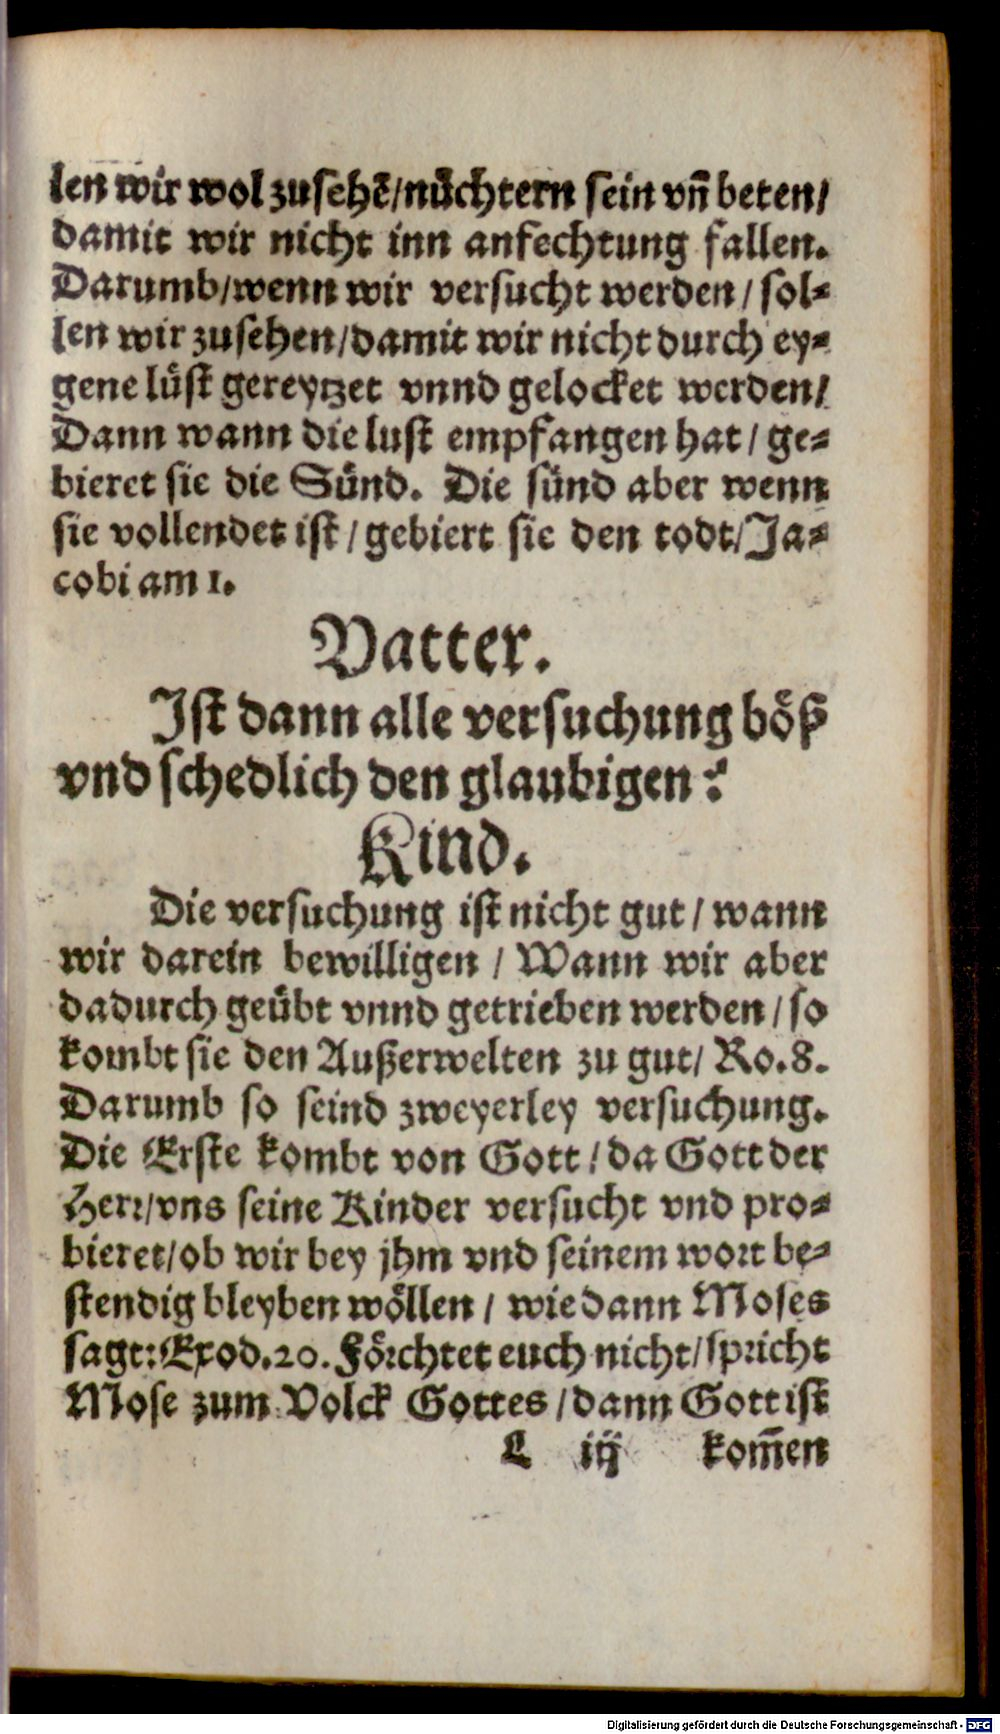 len wir wol zusehẽ/nuͤchtern sein vñ beten/
damit wir nicht inn anfechtung fallen.
Darumb/wenn wir versucht werden/ sol⸗
len wir zusehen/damit wir nicht durch ey⸗
gene luͤst gereytzet vnnd gelocket werden/
Dann wann die lust empfangen hat/ ge⸗
bieret sie die Suͤnd. Die suͤnd aber wenn
sie vollendet ist/ gebiert sie den todt/Ja⸗
cobi am 1.
Vatter.
Ist dann alle versuchung boͤß
vnd schedlich den glaubigen?
Kind.
Die versuchung ist nicht gut/ wann
wir darein bewilligen/ Wann wir aber
dadurch geuͤbt vnnd getrieben werden/ so
kombt sie den Außerwelten zu gut/ Ro.8.
Darumb so seind zweyerley versuchung.
Die Erste kombt von Gott/ da Gott der
Herr/vns seine Kinder versucht vnd pro⸗
bieret/ob wir bey jhm vnd seinem wort be⸗
stendig bleyben woͤllen/ wie dann Moses
sagt: Exod.20. Foͤrchtet euch nicht/spricht
Mose zum Volck Gottes/dann Gott ist
L iij kom̃en
Digitalisierung gefördert durch die Deutsche Forschungsgemeinschaft - DFG